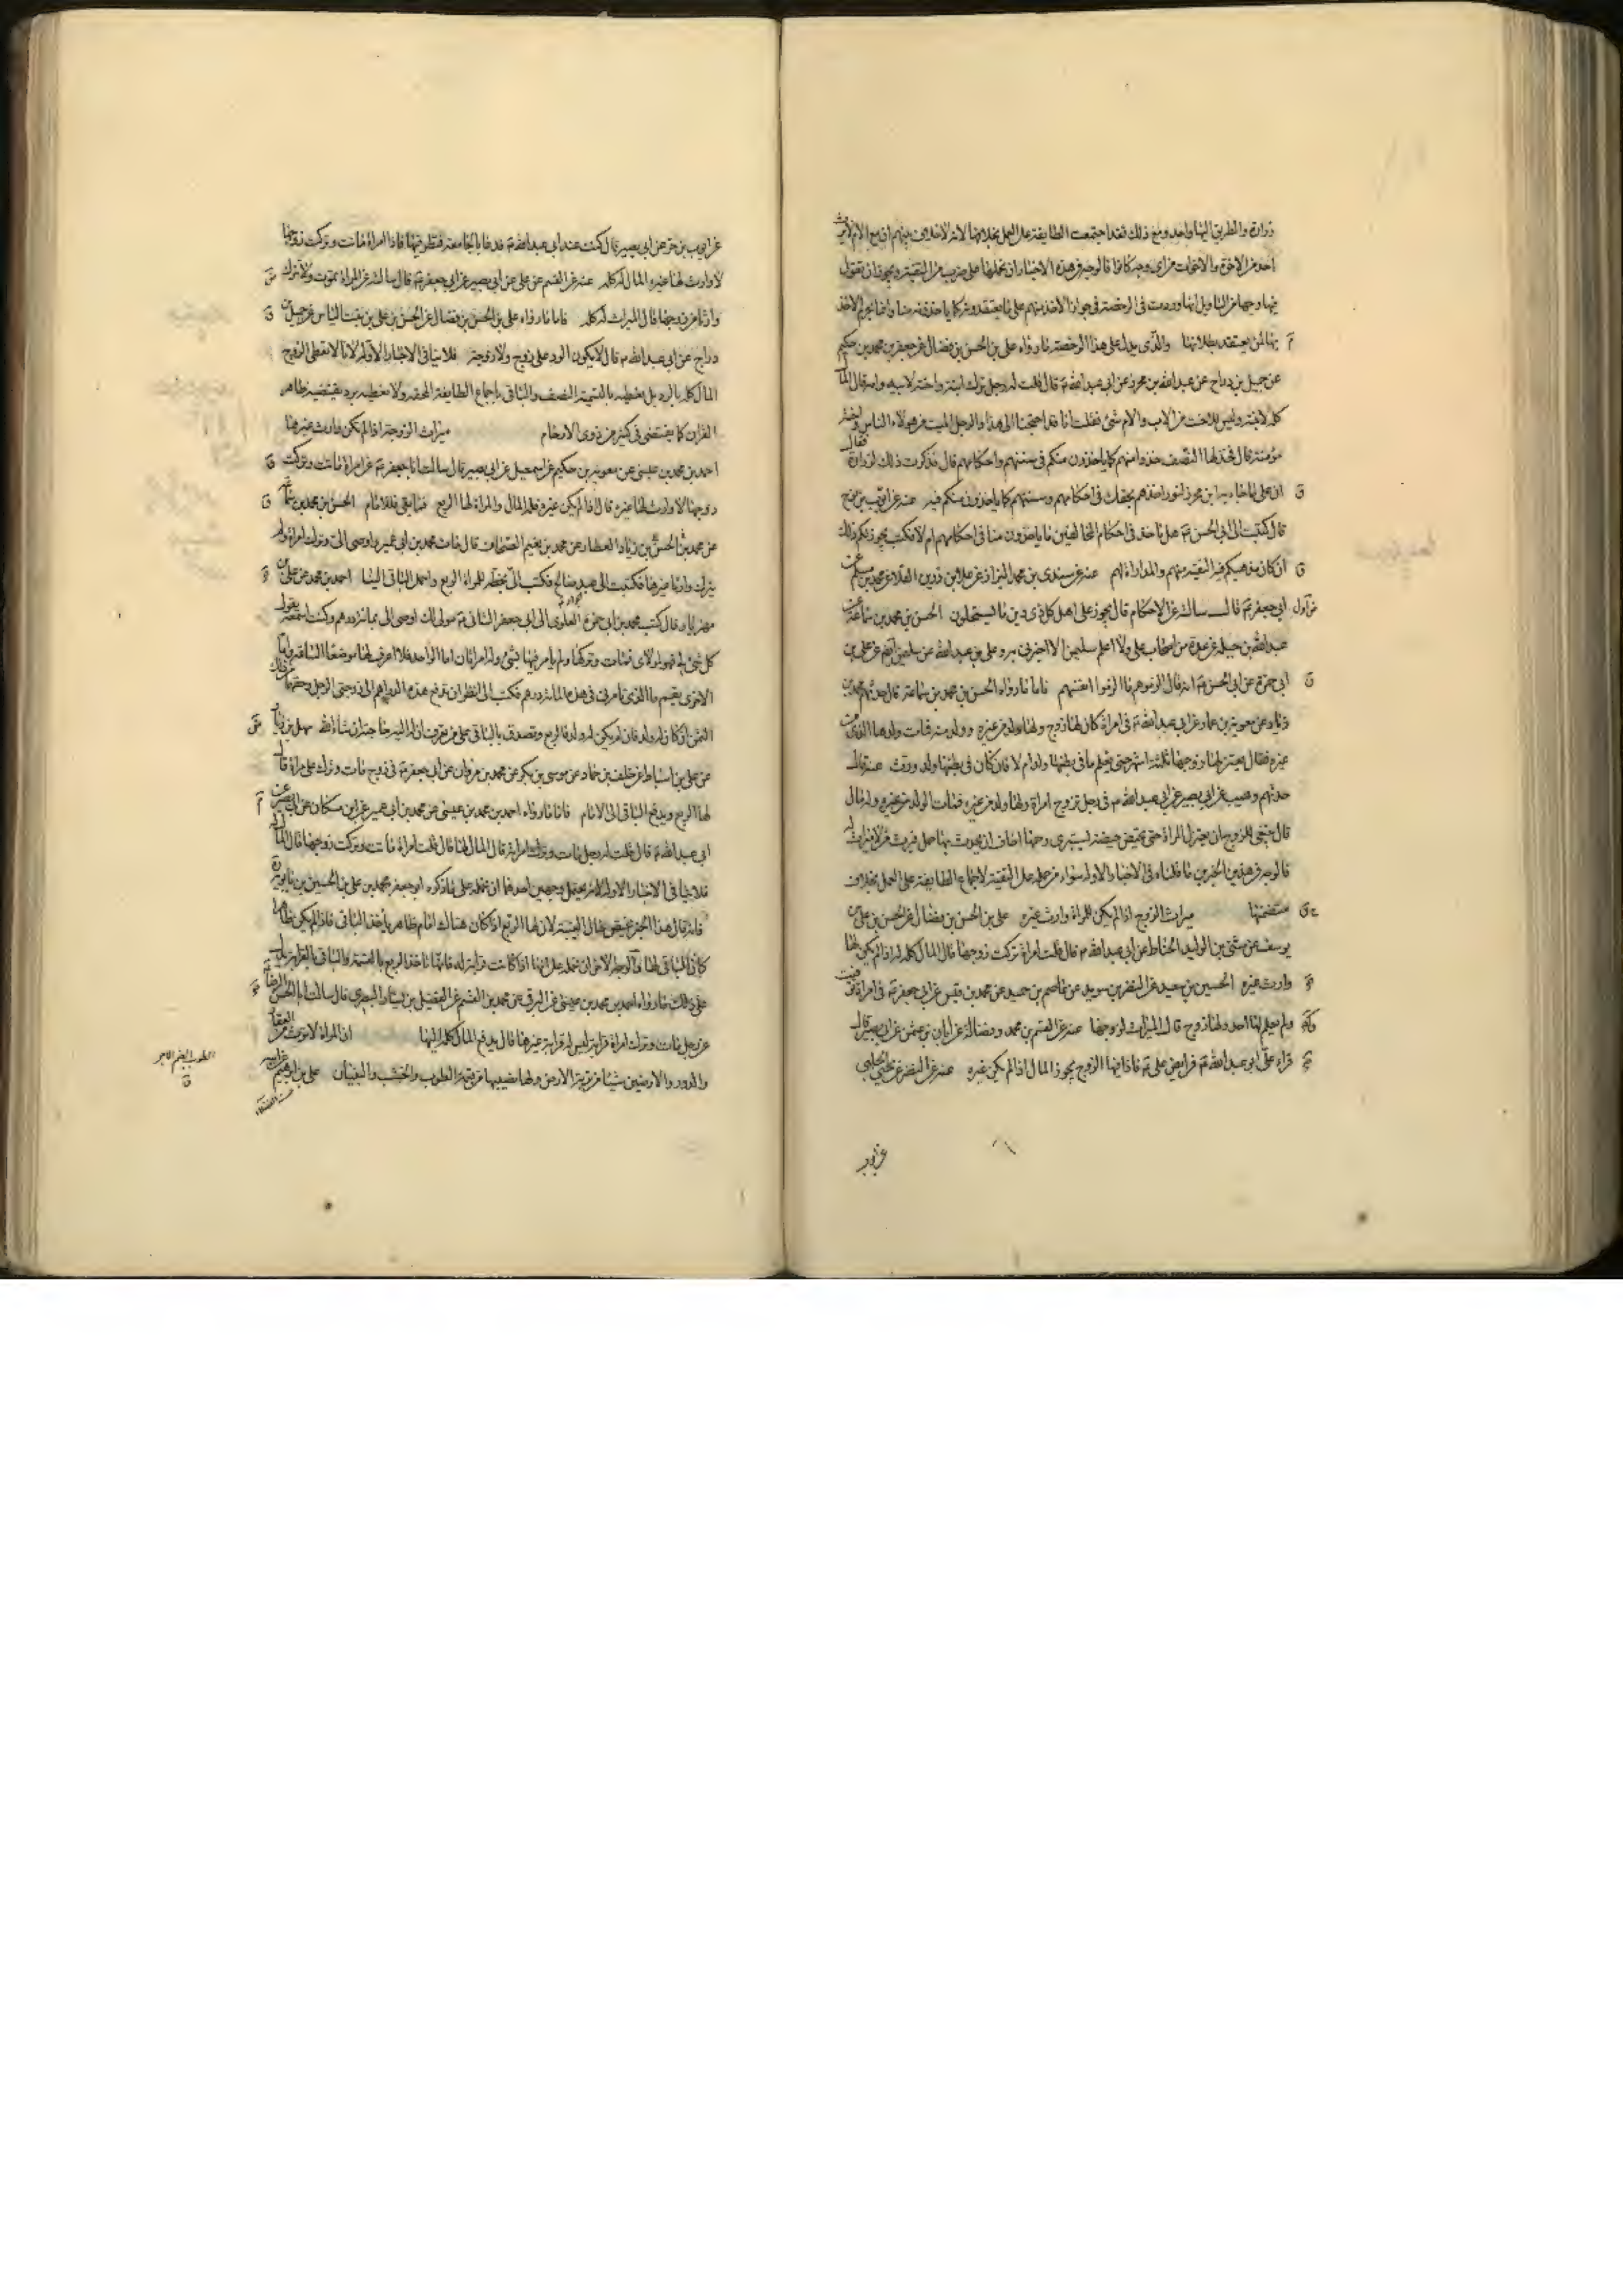 زرارة والطريق اليها واحد ومع ذلك فقد اجتمعت الطايفة على العمل بخلافها لانه لا خلاف بينهم ان مع الام لا يرث
احد من الاخوة والاخوات من اى وجه كانوا فالوجه فى هذه الاخبار ان نحملها على ضرب من التقية ويجوز ان نقول
فيها وجها من التاويل انها وردت فى الرخصة فى جواز الاخذ منهم على ما يعتقدونه كما ياخذونه منا وانما يحرم الاخذ
بها لمن يعتقد بطلانها والذى يدل على هذا الرخصة ما رواه على بن الحسن بن فضال عن جعفر بن محمد بن حكيم
عن جميل بن دراج عن عبد الله بن محرز عن ابى عبد الله ع قال قلت له رجل ترك ابنته واخته لابيه وامه قال المال
كله لابنته وليس للاخت من الاب والام شئ فقلت انا قد احتجنا الى هذا والرجل الميت من هولاء الناس واخته
مؤمنة قال فخذ لها النصف خذوا منهم كما ياخذون منكم فى سنتهم واحكامهم قال فذكرت ذلك لزرارة فقال
ان على ما جاء به ابن محرز لنورا خذهم بحقك فى احكامهم وسنتهم كما ياخذون منكم فيه عنه عن ايوب بن نوح
قال كتبت الى ابى الحسن ع هل ناخذ فى احكام المخالفين ما ياخذون منا فى احكامهم ام لا فكتب يجوز لكم ذلك
ان كان مذهبكم فيه التقية منهم والمداراة لهم عنه عن سندى بن محمد البزاز عن علا بن رزين القلا عن محمد بن مسلم عن
ابى جعفر ع قال سالته عن الاحكام قال يجوز على اهل كل ذى دين ما يستحلون الحسن بن محمد بن سماعة عن
عبد الله بن جبلة عن عدة من اصحاب على ولا اعلم سليمن الا اخبرنى به وعلى بن عبد الله عن سليمن ايضا عن على بن
ابى حمزة عن ابى الحسن ع انه قال الزموهم بما الزموا انفسهم فاما ما رواه الحسن بن محمد بن سماعة قال حدثهم محمد بن
زياد عن معوية بن عمار عن ابى عبد الله ع فى امراة كان لها زوج ولها ولد من غيره وولد منه فمات ولدها الذى من
غيره فقال يعتزلها زوجها ثلثة اشهر حتى يعلم ما فى بطنها ولد ام لا فان كان فى بطنها ولد ورث عنه قال
حدثهم وهيب عن ابى بصير عن ابى عبد الله ع فى رجل تزوج امراة ولها ولد من غيره فمات الولد من غيره وله مال
قال ينبغى للزوج ان يعتزل المراة حتى تحيض حيضة يستبرئ رحمها اخاف ان يحدث بها حمل فيرث من لا ميراث له
فالوجه فى هذين الخبرين ما قلناه فى الاخبار الاولة سواء من حمله على التقية لاجماع الطايفة على العمل بخلاف
متضمنها ميراث الزوج اذا لم يكن للمراة وارث غيره على بن الحسن بن فضال عن الحسن بن على بن
يوسف عن مثنى بن الوليد الحناط عن ابى عبد الله ع قال قلت امراة تركت زوجها قال المال كله له اذا لم يكن لها
وارث غيره الحسين بن سعيد عن النضر بن سويد عن عاصم بن حميد عن محمد بن قيس عن ابى جعفر ع فى امراة توفيت
ولم يعلم لها احد ولها زوج قال الميراث لزوجها عنه عن القسم بن محمد وفضالة عن ابان بن عثمن عن ابى بصير قال
قراء على ابو عبد الله ع فرايض على ع فاذا فيها الزوج يحوز المال اذا لم يكن غيره عنه عن النضر عن يحيى الحلبى
عن ايوب
عن ايوب بن حر عن ابى بصير قال كنت عند ابى عبد الله ع فدعا بالجامعة فنظر فيها فاذا امراة ماتت وتركت زوجها
لا وارث لها غيره المال له كله عنه عن القسم عن على عن ابى بصير عن ابى جعفر ع قال سالته عن المراة تموت ولا تترك
وارثا غير زوجها قال الميراث له كله فاما ما رواه على بن الحسن بن فضال عن الحسن بن على بن بنت الياس عن جميل بن
دراج عن ابى عبد الله ع قال لا يكون الرد على زوج ولا زوجة فلا ينافى الاخبار الاولة لانا لا نعطى الزوج
المال كله بالرد بل نعطيه بالتسمية النصف والباقى باجماع الطايفة المحقة ولا نعطيه برد يقتضيه ظاهر
القران كما يقتضى فى كثير من ذوى الارحام ميراث الزوجة اذا لم يكن وارث غيرها
احمد بن محمد بن عيسى عن معوية بن حكيم عن اسمعيل عن ابى بصير قال سالت ابا جعفر ع عن امراة ماتت وتركت
زوجها لا وارث لها غيره قال اذا لم يكن غيره فله المال والمراة لها الربع وما بقى فللامام الحسن بن محمد بن سماعة
عن محمد بن الحسن بن زياد العطار عن محمد بن نعيم الصحاف قال مات محمد بن ابى عمير واوصى الى وترك امراة ولم
يترك وارثا غيرها فكتبت الى عبد صالح فكتب الى بخطه للمراة الربع واحمل الباقى الينا احمد بن محمد عن على بن
مهزيار قال كتب محمد بن ابى حمزة العلوى الى ابى جعفر الثانى ع مولى لك اوصى الى بمائة درهم وكنت اسمعه يقول
كل شئ لى فهو لمولاى فمات وتركها ولم يامر فيها بشئ وله امراتان اما الواحدة فلا اعرف لها موضعا الساعة واما
الاخرى بقم ما الذى تامرنى فى هذه المائة درهم فكتب الى انظر ان تدفع هذه الدراهم الى زوجتى الرجل وحقهما من ذلك
الثمن ان كان له ولد فان لم يكن له ولد فالربع وتصدق بالباقى على من تعرف ان له اليه حاجة ان شاء الله سهل بن زياد
عن على بن اسباط عن خلف بن حماد عن موسى بن بكر عن محمد بن مروان عن ابى جعفر ع فى زوج مات وترك امراة قال
لها الربع ويدفع الباقى الى الامام فاما ما رواه احمد بن محمد بن عيسى عن محمد بن ابى عمير عن ابن مسكان عن ابى بصير عن
ابى عبد الله ع قال قلت له رجل مات وترك امراته قال المال لها قال قلت امراة ماتت وتركت زوجها قال المال له
فلا ينافى الاخبار الاولة لانه يحتمل وجهين احدهما ان نحمله على ما ذكره ابو جعفر محمد بن على بن الحسين بن بابويه ره
فانه قال هذا الخبر يختص بحال الغيبة لان لها الربع اذا كان هناك امام ظاهر ياخذ الباقى فاذا لم يكن ظاهرا
كان الباقى لها والوجه الاخر ان نحمله على انها اذا كانت قرابة له فانها تاخذ الربع بالتسمية والباقى بالقرابة يدل
على ذلك ما رواه احمد بن محمد بن عيسى عن البرقى عن محمد بن القسم عن الفضيل بن يسار البصرى قال سالت ابا الحسن الرضا ع
عن رجل مات وترك امراة قرابة ليس له قرابة غيرها قال يدفع المال كله اليها ان المراة لا ترث من العقار
والدور والارضين شيئا من تربة الارض ولها نصيبها من قيمة الطوب والخشب والبنيان على بن ابرهيم عن ابيه
الطوب بالضم الاجر
ق